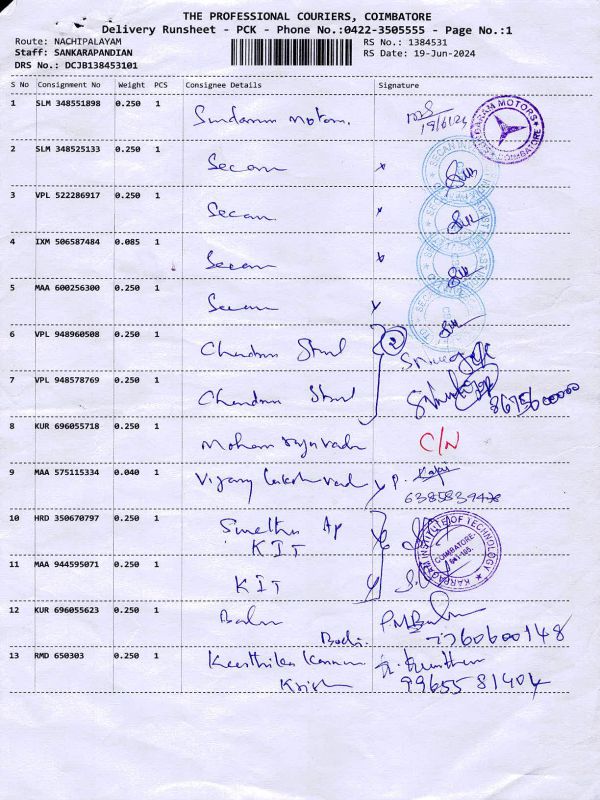 THE PROFESSIONAL COURIERS, COIMBATORE
Delivery Runsheet - PCK - Phone No.:0422-3505555 - Page No.:1
Route: NACHIPALAYAM RS No.: 1384531
Staff: SANKARAPANDIAN RS Date: 19-Jun-2024
DRS No.: DCJB138453101
S No Consignment No Weight PCS Consignee Details Signature
1 SLM 348551898 0.250 1 Sundaram Motors. 19/6/24
SUNDARAM MOTORS COIMBATORE
2 SLM 348525133 0.250 1 Secan x
3 VPL 522286917 0.250 1 Secan x
4 IXM 506587484 0.085 1 Secan x
5 MAA 600256300 0.250 1 Secan
6 VPL 948960508 0.250 1 Chandra Steel 2
7 VPL 948578769 0.250 1 Chandra Steel
8 KUR 696055718 0.250 1 Mohan C/N
9 MAA 575115334 0.040 1 Vijay P.
6385839478
10 HRD 350670797 0.250 1 Ap
KIT
INSTITUTE OF TECHNOLOGY COIMBATORE-
11 MAA 944595071 0.250 1 KIT
12 KUR 696055623 0.250 1 Balu P.M
7760600148
13 RMD 650303 0.250 1 Keerthika
Krish 9965581404